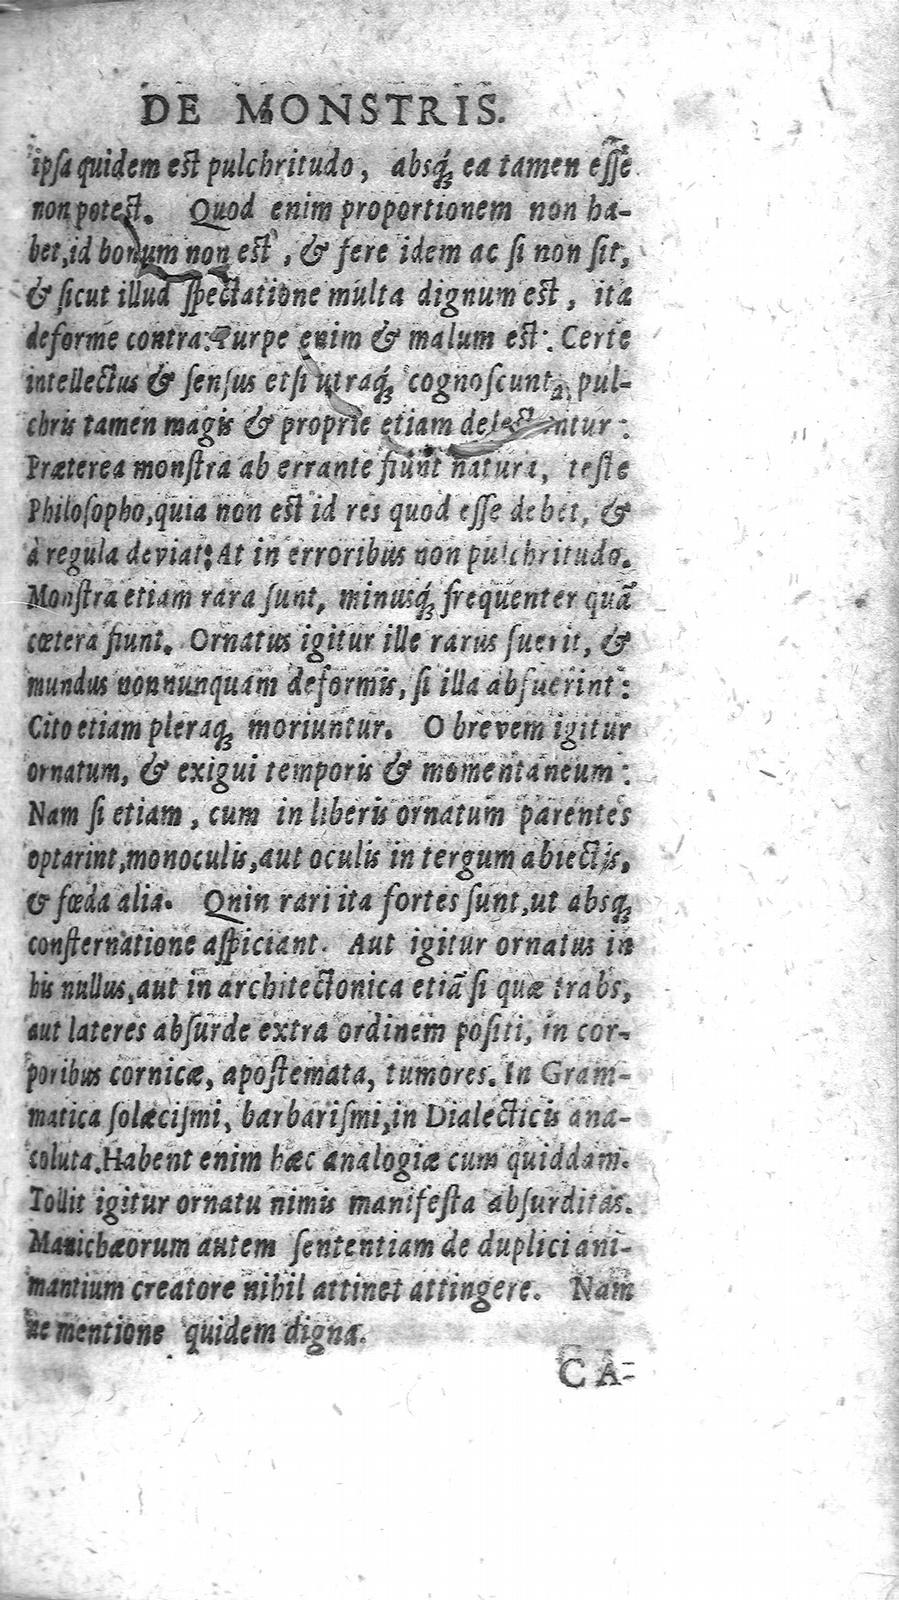 DE MONSTRIS.
ipſa quidem eſt pulchritudo, absq́; ea tamen eſſe
non poteſt. Quod enim proportionem non ha-
bet, id bonum non eſt, & fere idem ac ſi non ſit,
& ſicut illud ſpectatione multa dignum eſt, ita
deforme contra: Turpe enim & malum eſt: Certe
intellectus & ſenſus etſi utraq́; cognoſcunt, pul-
chris tamen magis & proprie etiam delectantur:
Præterea monſtra ab errante fiunt natura, teſte
Philoſopho, quia non eſt id res quod eſſe debet, &
à regula deviat: At in erroribus non pulchritudo.
Monſtra etiam rara ſunt, minusq́; frequenter quã
cœtera fiunt. Ornatus igitur ille rarus fuerit, &
mundus nonnunquam deformis, ſi illa abfuerint:
Cito etiam pleraq; moriuntur. O brevem igitur
ornatum, & exigui temporis & momentaneum:
Nam ſi etiam, cum in liberis ornatum parentes
optarint, monoculis, aut oculis in tergum abiectis,
& fœda alia. Qnin rari ita fortes ſunt, ut absq;
conſternatione aſpiciant. Aut igitur ornatus in
his nullus, aut in architectonica etiã ſi quæ trabs,
aut lateres abſurde extra ordinem poſiti, in cor-
poribus cornicæ, apoſtemata, tumores. In Gram-
matica ſolæciſmi, barbariſmi, in Dialecticis ana-
coluta. Habent enim hæc analogiæ cum quiddam.
Tollit igitur ornatu nimis manifeſta abſurditas.
Manichæorum autem ſententiam de duplici ani-
mantium creatore nihil attinet attingere. Nam
ne mentione quidem digna.
CA-